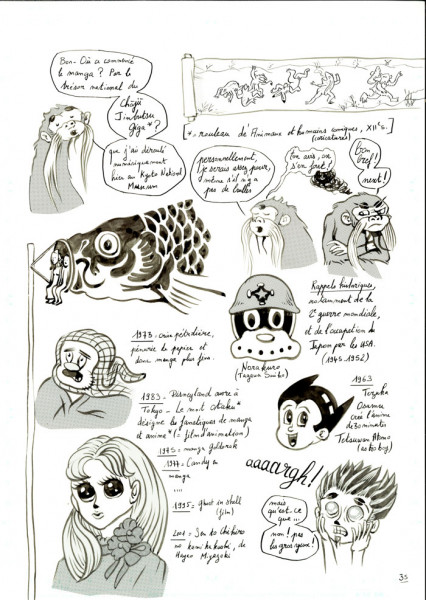 Bon - Où a commencé
le manga ? Par le
trésor national du
Chôjû
Jinbutsu
Giga * ?
que j'ai déroulé
numériquement
hier au Kyoto National
Museum
[* - rouleau de
et humains comiques, XIIe s.
(caricatures)]
personnellement,
je serais assez pour,
même s'il n'y a
pas de bulles
Ton avis, on
s'en fout !
bon
bref !
next !
Rappels historiques,
notamment de la
2e guerre mondiale,
et de l'occupation du
Japon par les USA.
(1945-1952)
Norakuro
1973 - crise pétrolière,
pénurie de papier et
donc manga plus fins.
1963
Tezuka
Osamu
crée l'anime
de 30 minutes
Tetsuwan Atomu
(astroboy)
1983 - Disneyland ouvre à
Tokyo - Le mot otaku *
désigne les fanatiques de manga
et anime * (= film d'animation)
1975 - manga goldorak
1977 - Candy
manga
...
1995 - Ghost in Shell
(film)
2001 - Sen to Chihiro
no kamikakushi, de
Hayao Miyazaki
aaaargh!
mais
qu'est-ce
que...
non ! pas
les gros yeux !
35